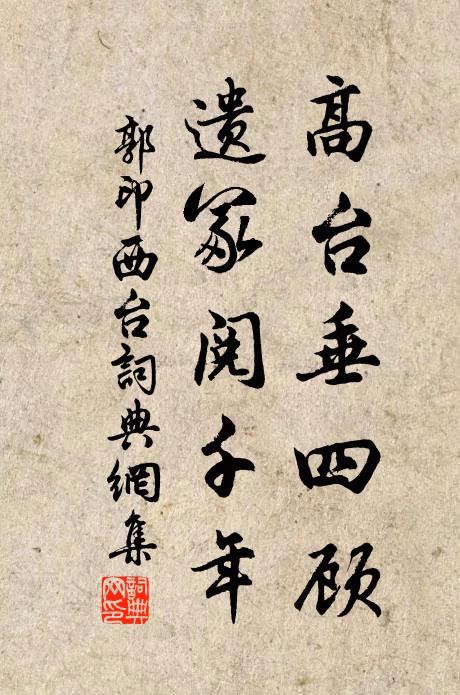 高台垂四顾
遗冢阅千年
郭印西台詞典網集
詞典网印